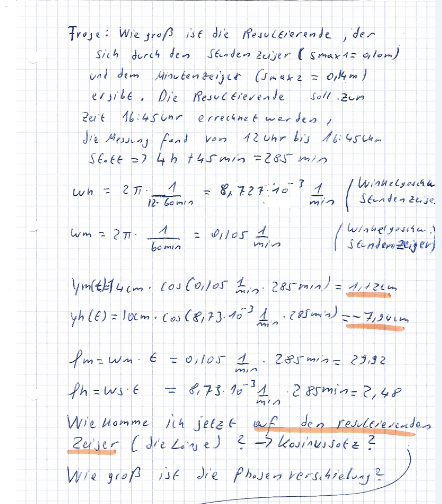 Frage: Wie groß ist die Resultierende, der
sich durch den Stundenzeiger (smax1 = 0,10m)
und dem Minutenzeiger (smax2 = 0,14m)
ergibt. Die Resultierende soll zur
Zeit 16:45 Uhr errechnet werden,
die Messung fand von 12 Uhr bis 16:45 Uhr
statt => 4h + 45min = 285 min
ωh = 2π · 1/12·60min = 8,727·10⁻³ 1/min (Winkelgeschw. Stundenzeige
ωm = 2π · 1/60min = 0,105 1/min (Winkelgeschw. Stundenzeiger)
ym(t)=14cm · cos(0,105 1/min · 285min) = 1,12cm
yh(t) = 10cm · cos(8,73·10⁻³ 1/min · 285min) = -7,94cm
φm = ωm · t = 0,105 1/min · 285min = 29,92
φh = ωs · t = 8,73·10⁻³ 1/min · 285min = 2,48
Wie komme ich jetzt auf den resultierenden
Zeiger (die Länge)? → Kosinussatz?
Wie groß ist die Phasenverschiebung?